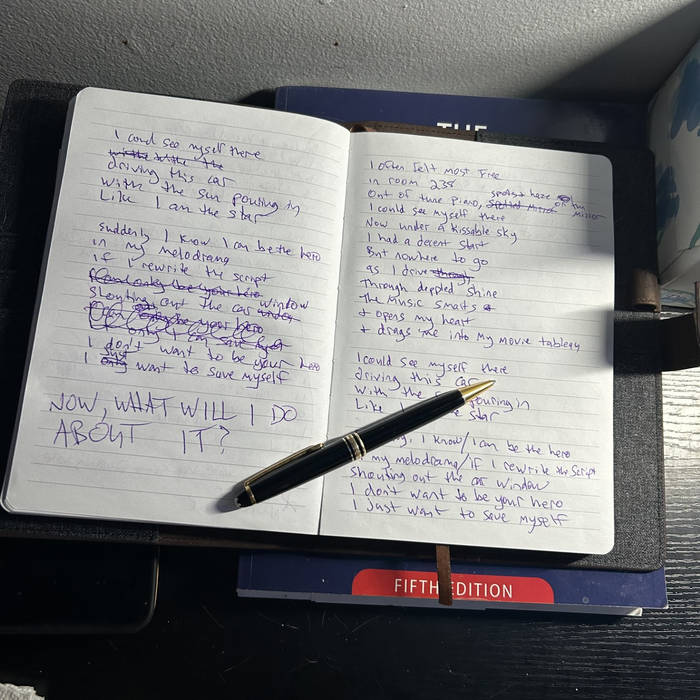 I could see myself there
driving this car
with the sun pouring in
Like I am the star
Suddenly I know I can be the hero
in my melodrama
if I rewrite the script
shouting out the car window
I don't want to be your hero
I just want to save myself
NOW, WHAT WILL I DO
ABOUT IT?
THE
I often felt most free
in room 235
spotted haze on the mirror
Out of tune piano,
I could see myself there
Now under a kissable sky
I had a decent start
But nowhere to go
as I drive
Through deppled shine
The music smarts
+ opens my heart
+ drags me into my movie
I could see myself there
driving this car
With the pouring in
Like I star
I know/I can be the hero
my melodrama/if I rewrite the script
shouting out the car window
I don't want to be your hero
I just want to save myself
FIFTH EDITION